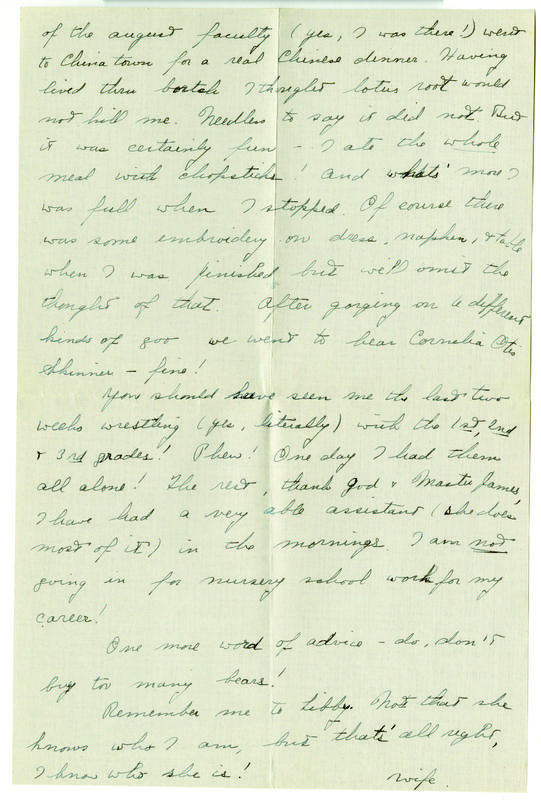 of the august faculty (yes, I was there!) went
to Chinatown for a real Chinese dinner. Having
lived thru bortch I thought lotus root would
not kill me. Needless to say it did not. But
it was certainly fun - I ate the whole
meal with chopsticks! And what's more I
was full when I stopped. Of course there
was some embroidery on dress, napkin, & table
when I was finished but we'll omit the
thought of that. After gorging on 6 different
kinds of goo we went to hear Cornelia Otis
Skinner - fine!
You should have seen me the last two
weeks wrestling (yes, literally) with the 1st, 2nd
& 3rd grades! Phew! One day I had them
all alone! The rest, thank god & Master James,
I have had a very able assistant (she does
most of it) in the mornings. I am not
going in for nursery school work for my
career!
One more word of advice - do, don't
buy too many bears!
Remember me to Libby. Not that she
knows who I am, but that's all right,
I know who she is!
Wife.